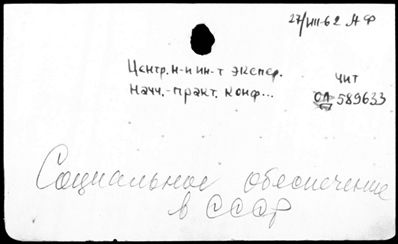 27/VIII-62 АФ
Центр. н-и ин-т экспер.
Научн.-практ. конф...
чит
ОА 589633
Социальное обеспечение
в СССР